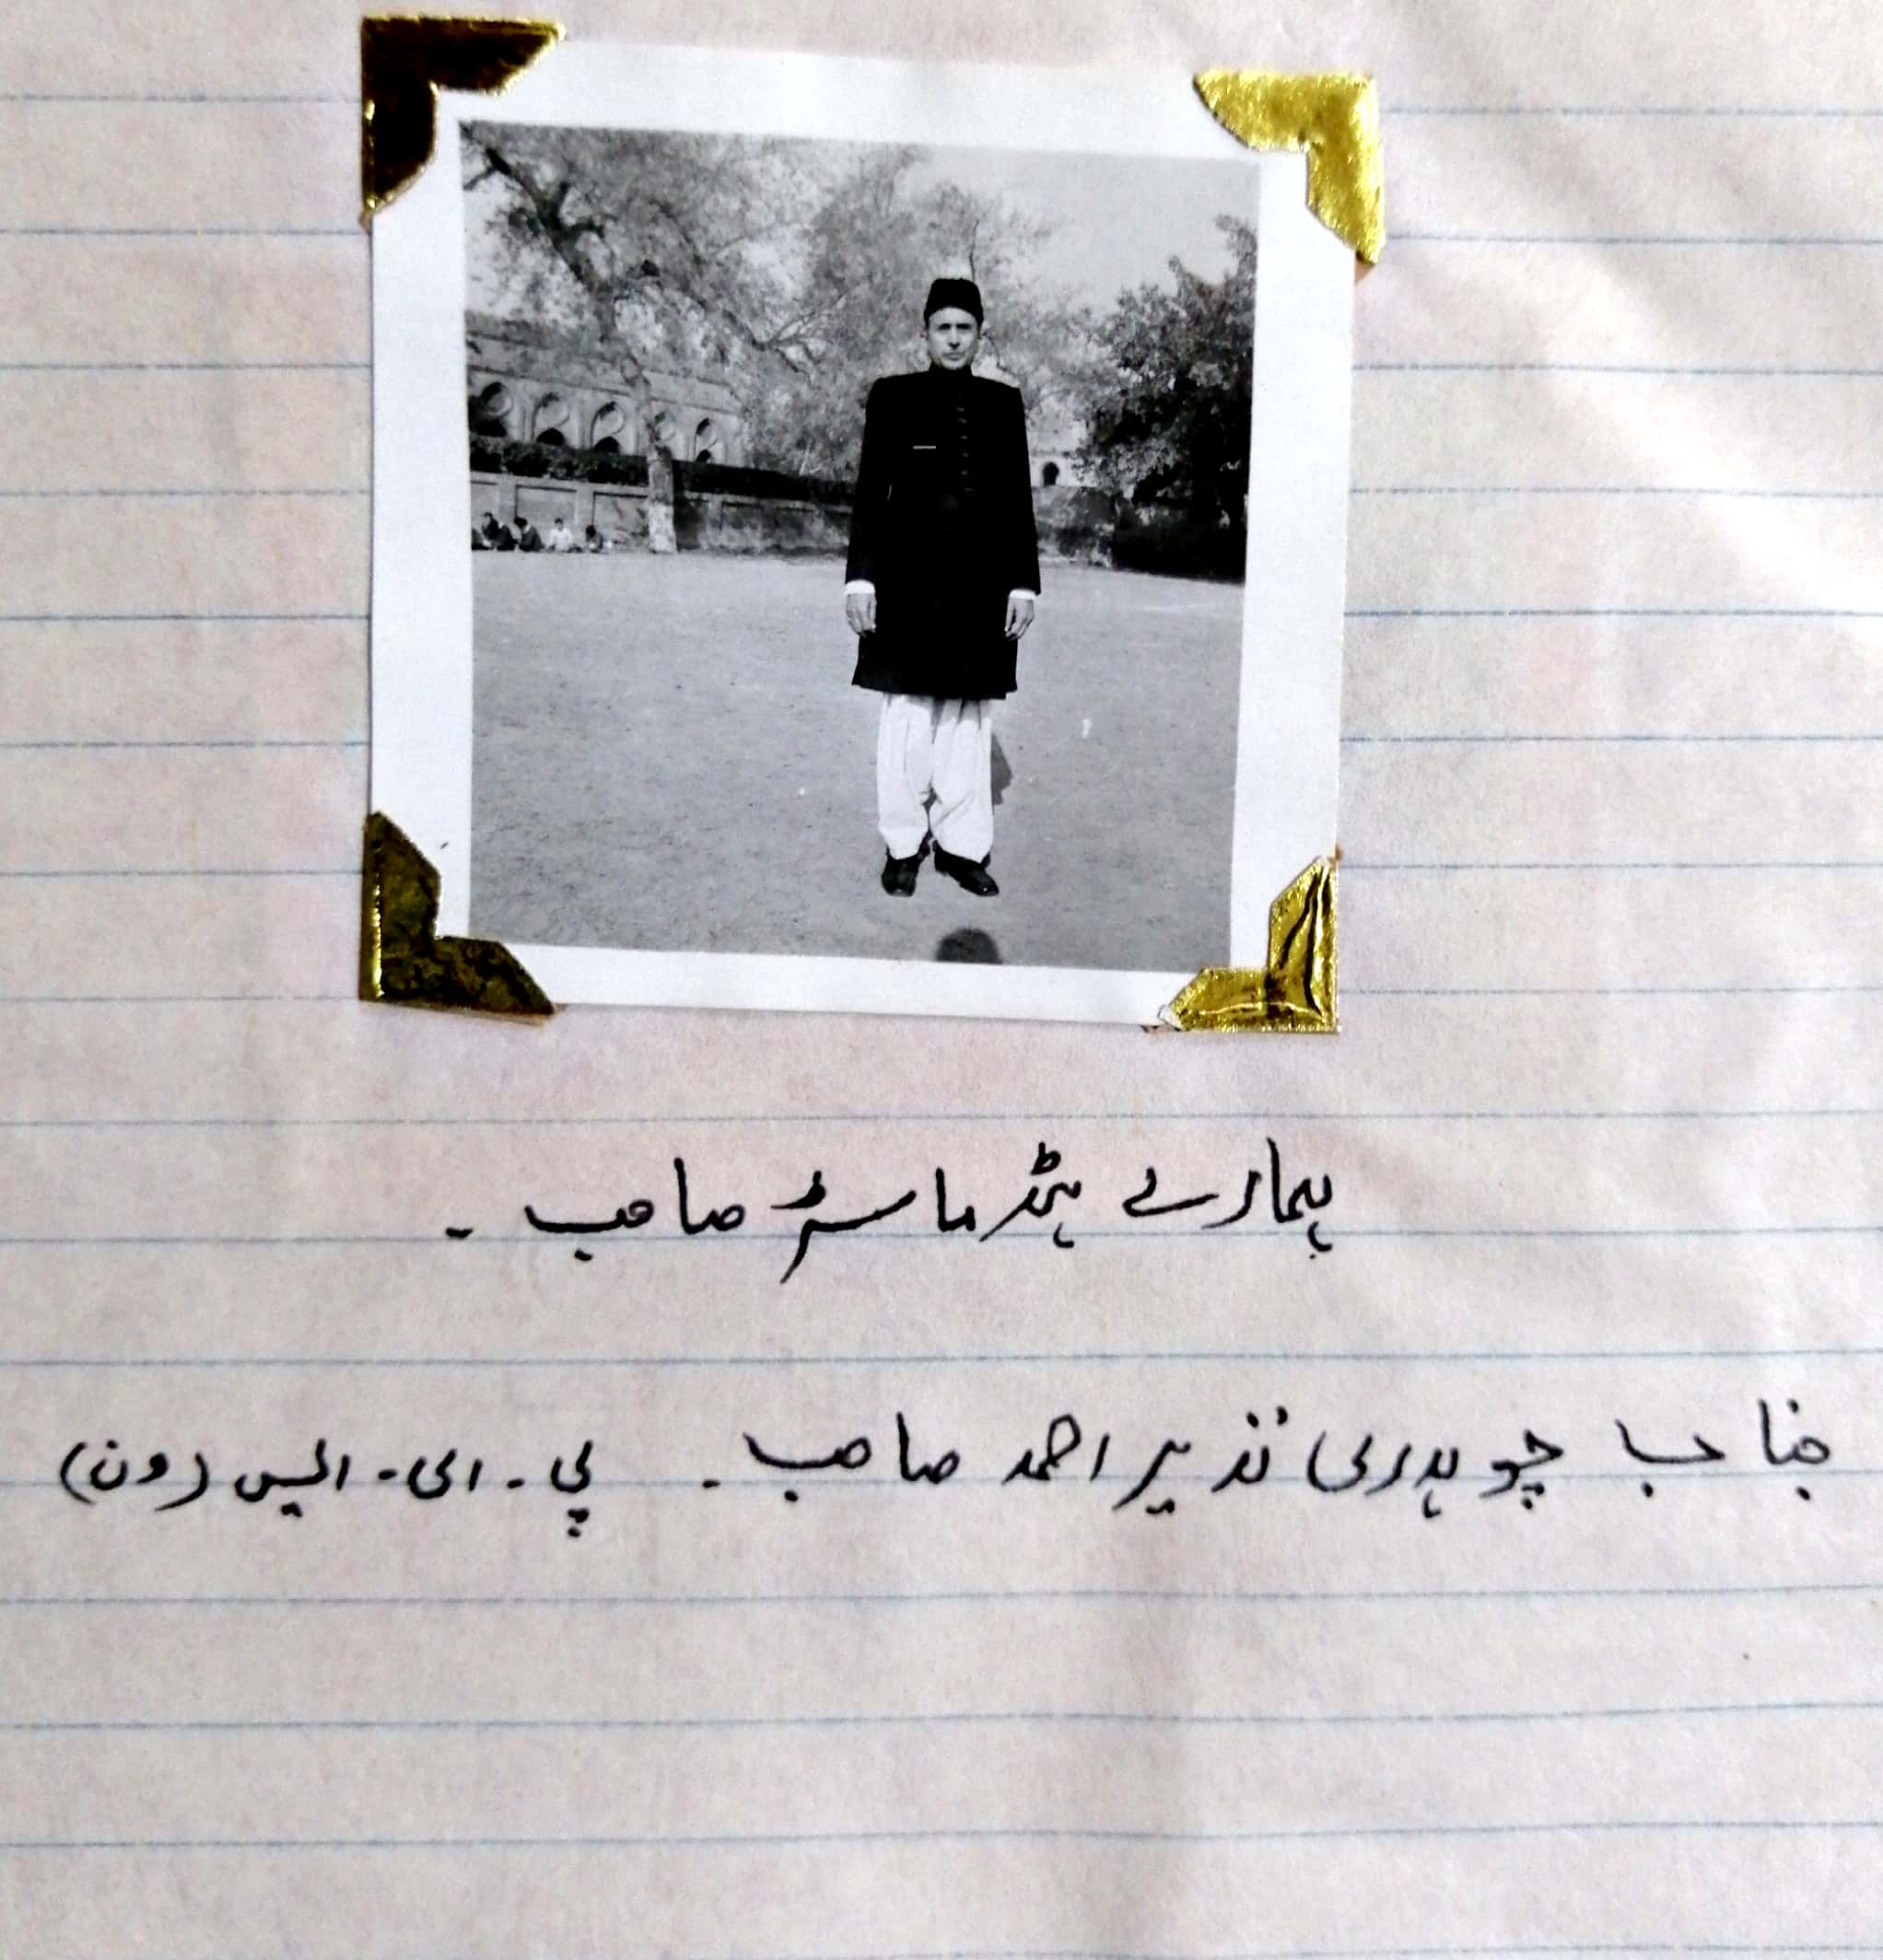 ہمارے ہیڈ ماسٹر صاحب ۔
جناب چوہدری نذیر احمد صاحب ۔ پی ۔ ای ۔ ایس (ون)